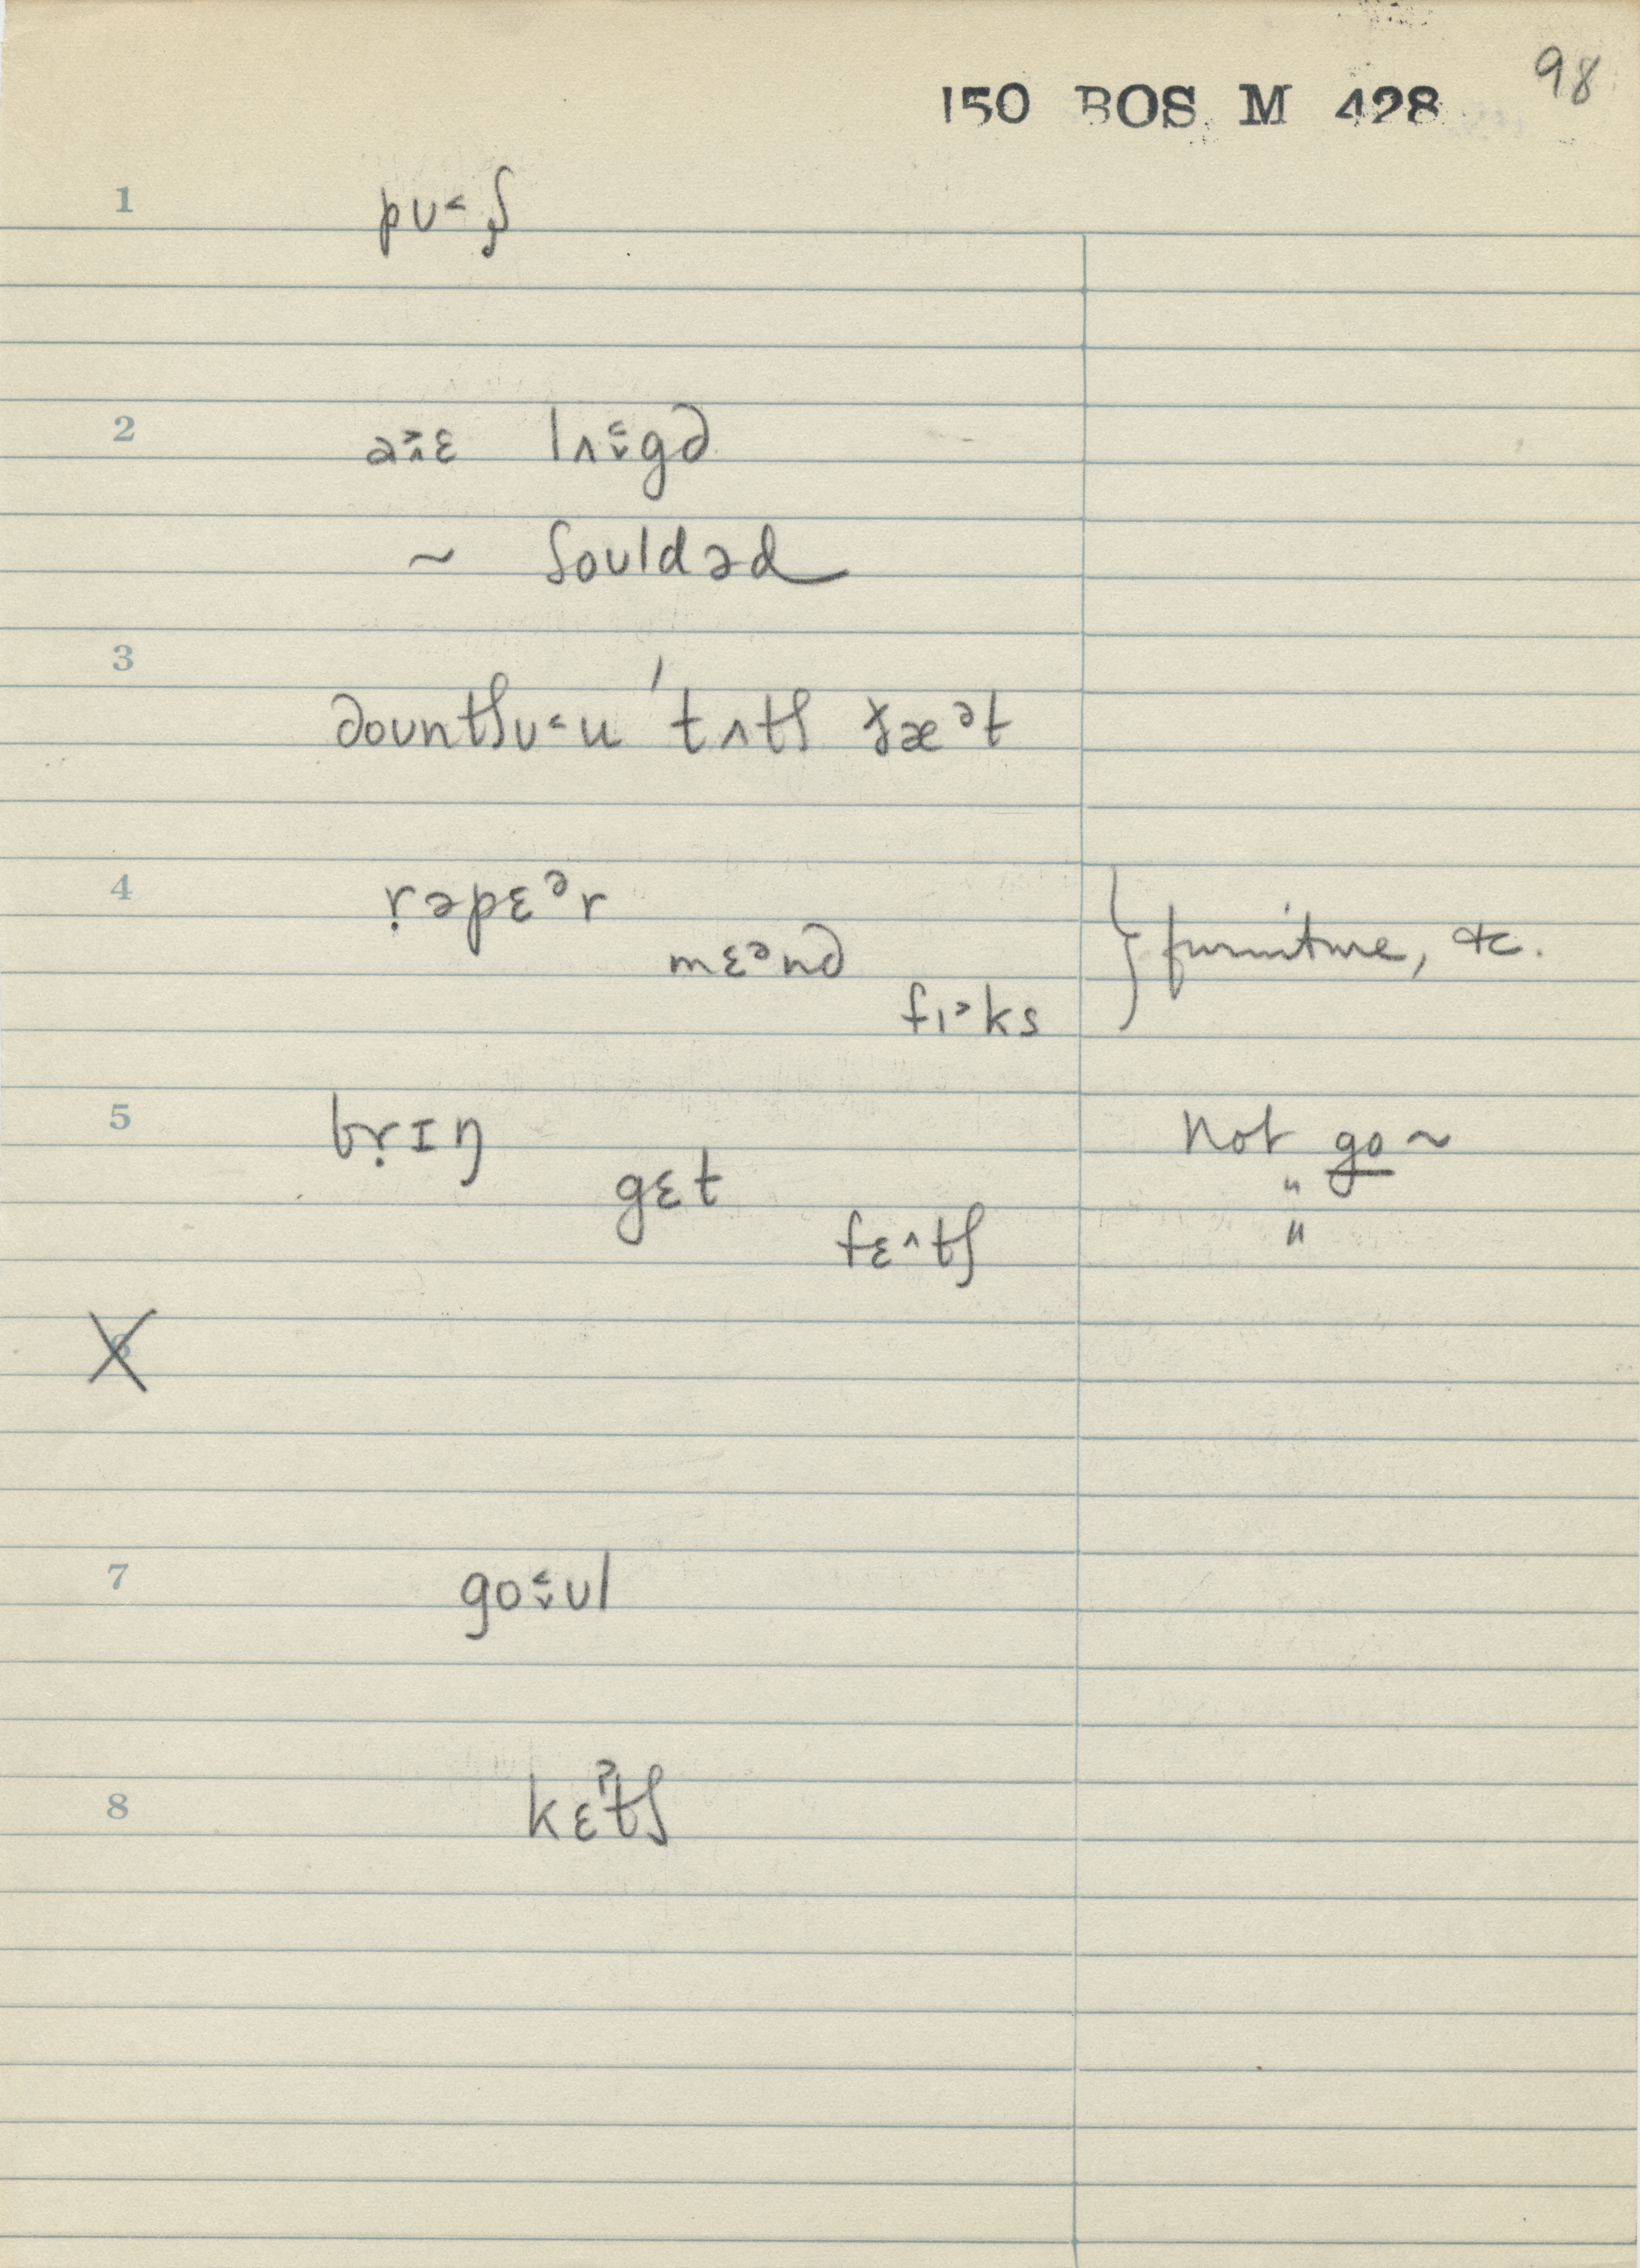 98
150 BOS M 428
1 pʊ˂ʃ
2 a˃ɛ lʌ˂gd
~ ʃoʊldəd
3 doʊntʃʊ˂u ˈtʌtʃ ðæᵊt
4 rəpɛᵊr
mɛᵊnd } furniture, &c.
fɪ˃ks
5 brɪŋ not go ~
gɛt "
fɛ^tʃ "
6
7 go˂ʊl
8 kɛˀtʃ